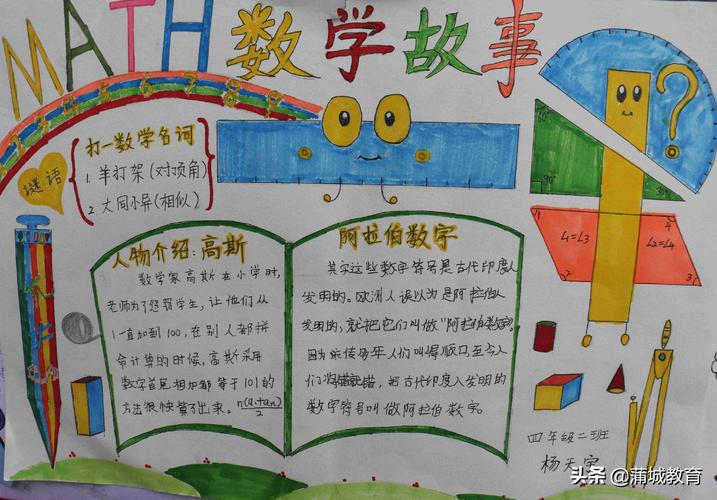 MATH 数学故事
谜语
打一数学名词
1. 羊打架(对顶角)
2. 大同小异(相似)
60°
90°
30°
1
4
∠1=∠3
∠2=∠4
2
3
人物介绍:高斯
数学家高斯在小学时,
老师为了惩罚学生,让他们从
1一直加到100,在别人都拼
命计算的时候,高斯采用
数字首尾相加都等于101的
方法很快算了出来。n(a₁+aₙ)/2
阿拉伯数字
其实这些数字符号是古代印度人
发明的。欧洲人误以为是阿拉伯人
发明的,就把它们叫做"阿拉伯数字"。
因为流传多年人们叫得顺口,至今人
们将错就错,把古代印度人发明的
数字符号叫做阿拉伯数字。
四年级二班
杨天
头条 @蒲城教育